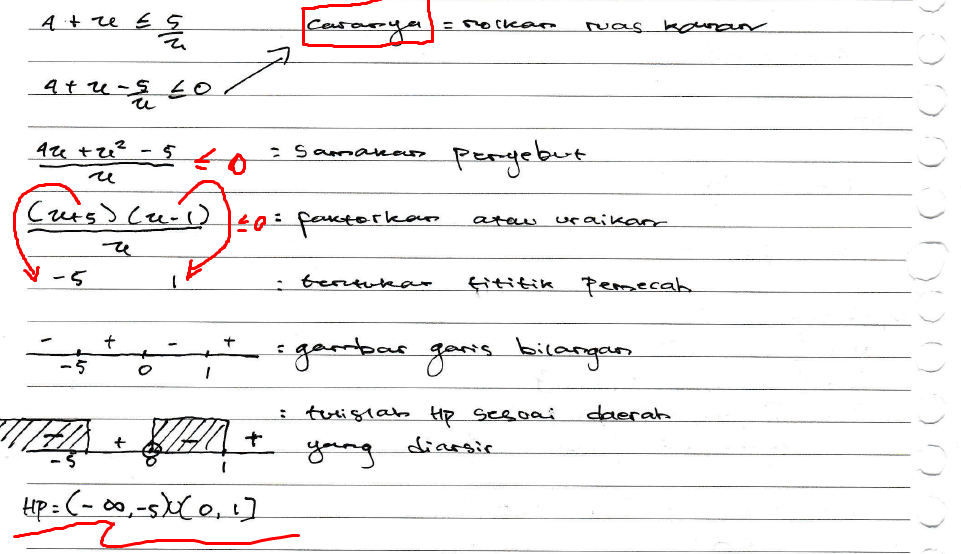 4 + x ≤ 5/x   Caranya = nolkan ruas kanan
4 + x - 5/x ≤ 0
(4x + x² - 5)/x ≤ 0 = Samakan penyebut
((x+5)(x-1))/x ≤ 0 = faktorkan atau uraikan
-5   1   : tentukan tititik Pemecah
- + - +
-5 0 1   = gambar garis bilangan
: tulislah Hp sesuai daerah
- + - +   yang diarsir
-5 0 1
HP = (-∞, -5) ∪ (0, 1]